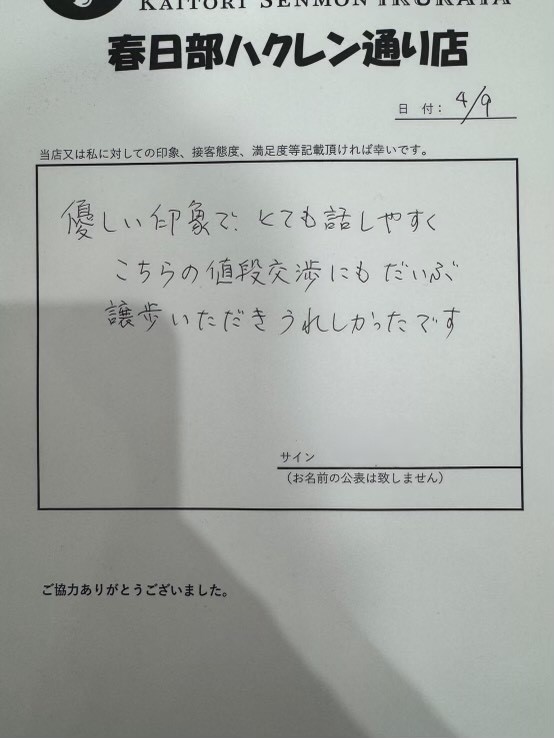 KAITORI SENMON IKURAYA
春日部ハクレン通り店
日 付： 4/9
当店又は私に対しての印象、接客態度、満足度等記載頂ければ幸いです。
優しい印象で、とても話しやすく
こちらの値段交渉にもだいぶ
譲歩いただきうれしかったです
サイン
（お名前の公表は致しません）
ご協力ありがとうございました。